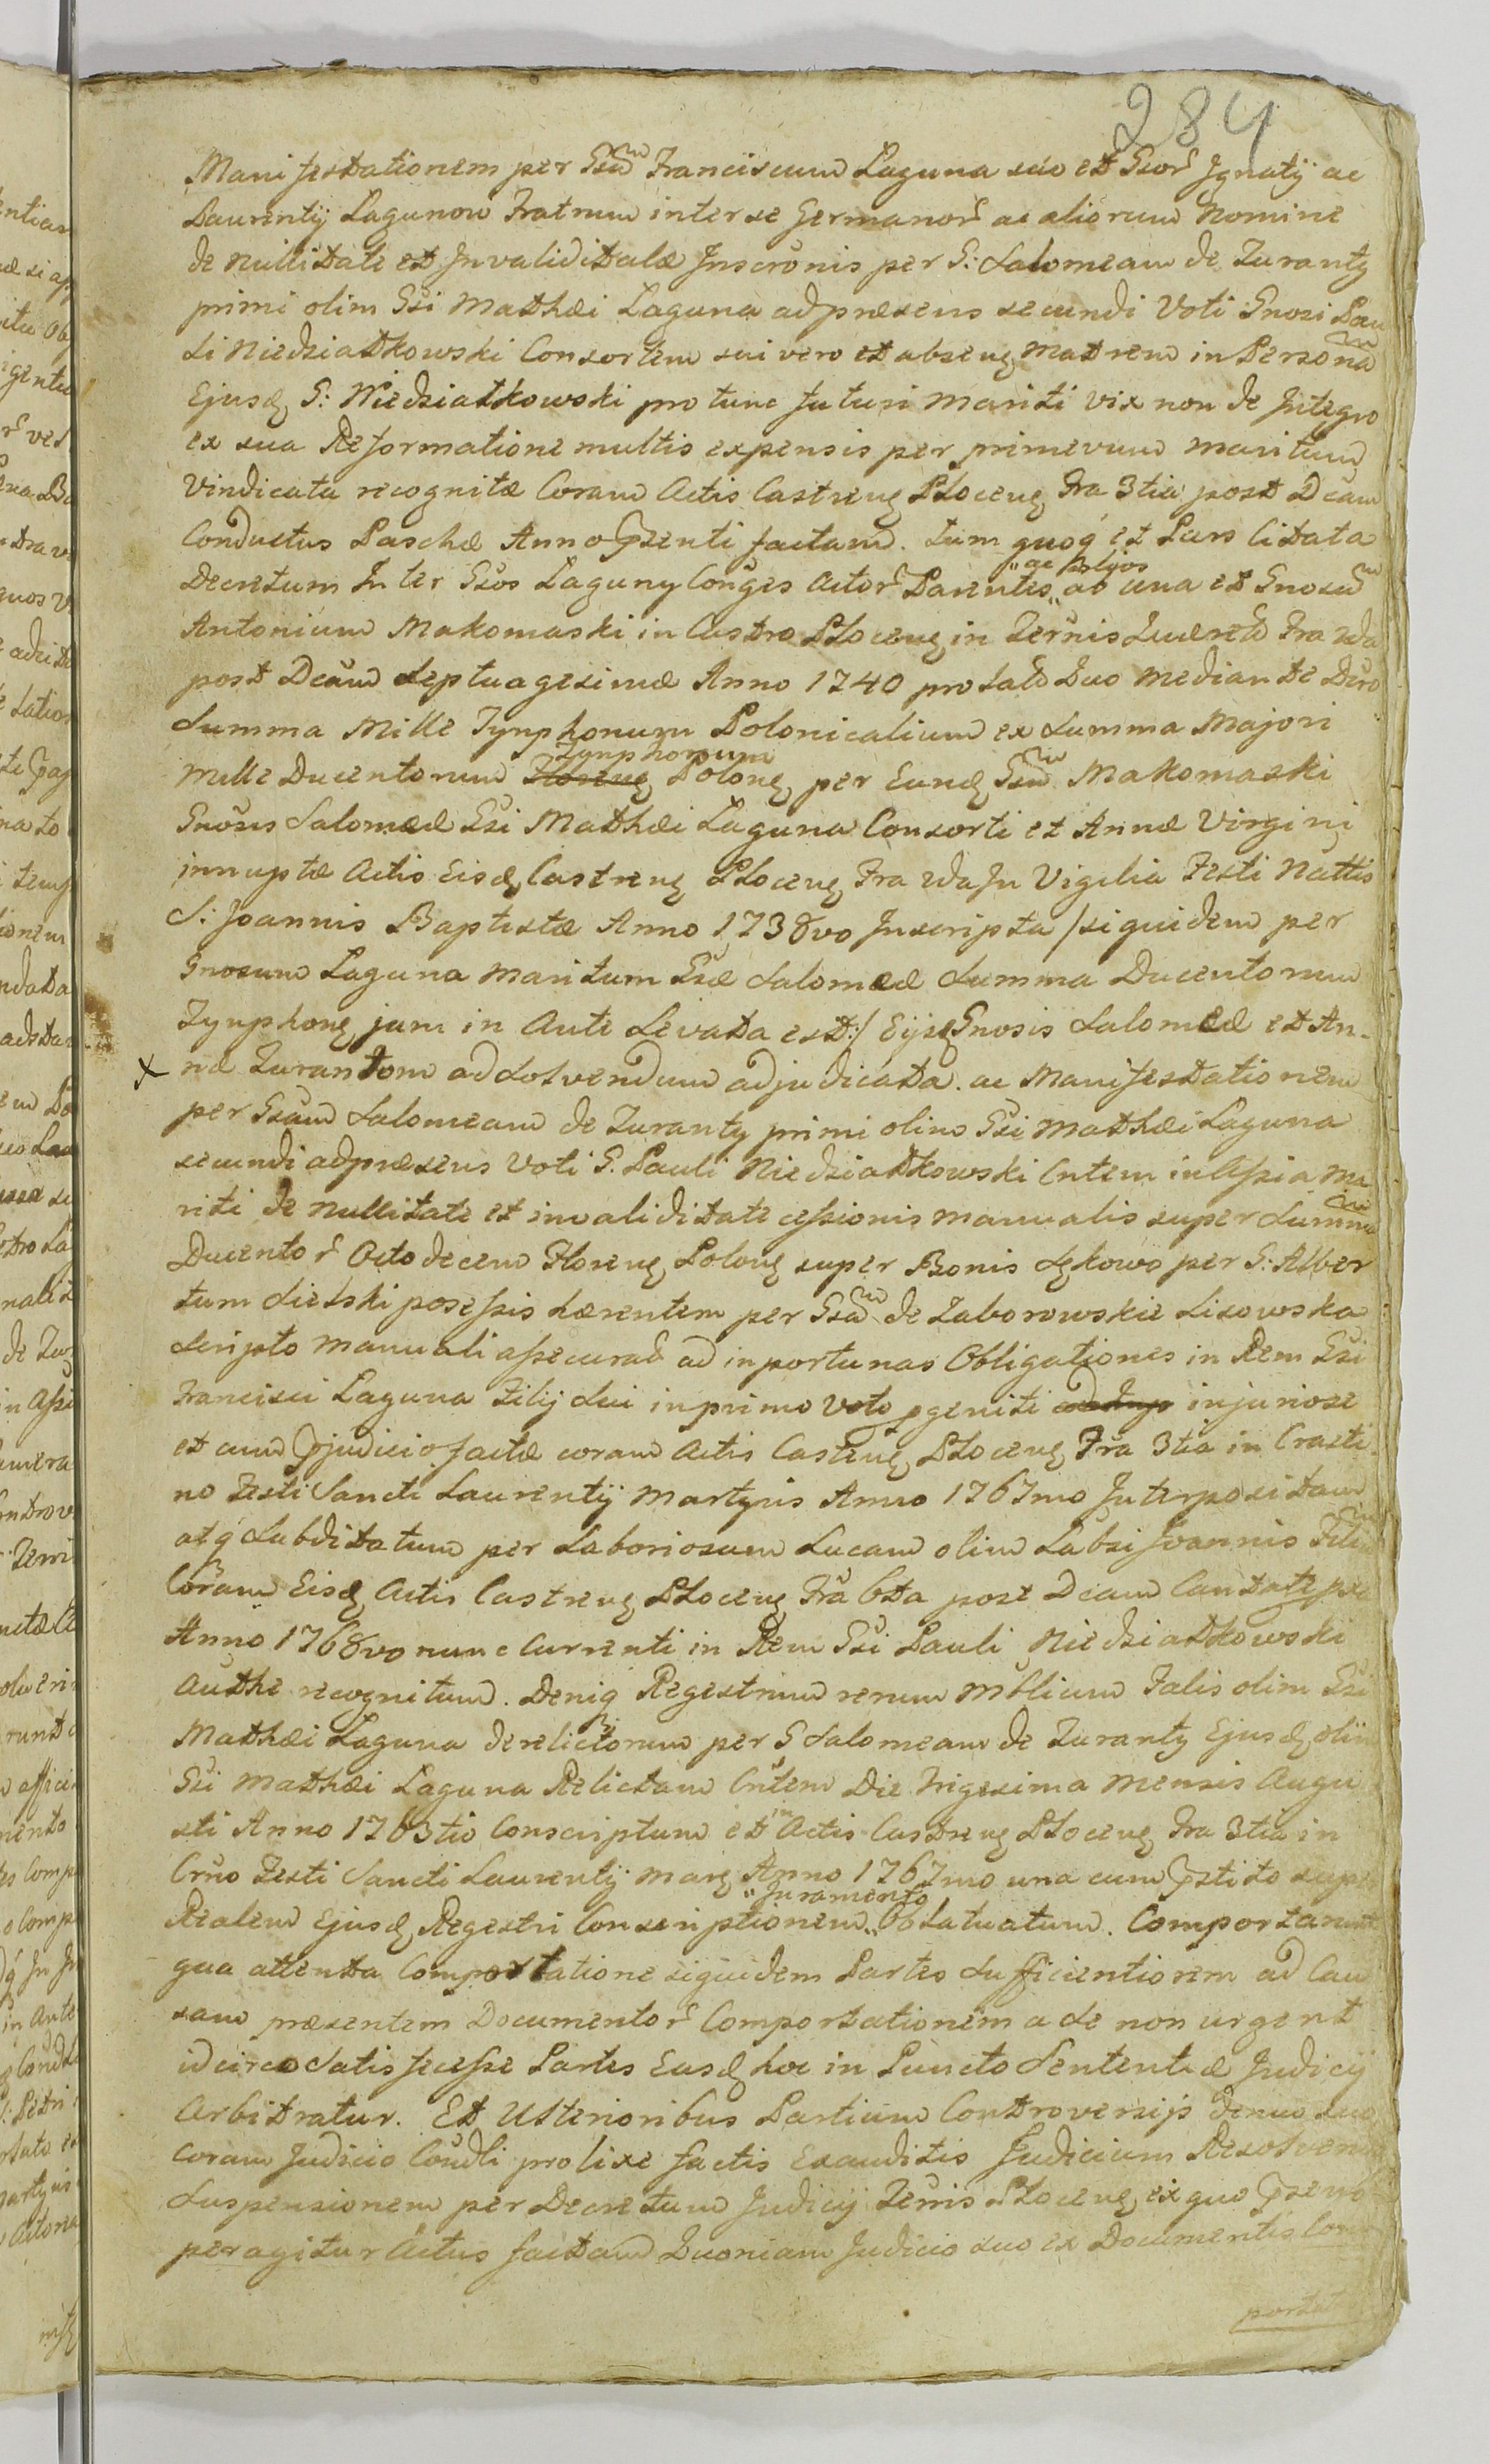 284
Manifestationem per Gsum Franciscum Laguna suo et Gsor Ignatij ac
Laurentij Lagunow Fratrum inter se Germanor ac aliorum Nomine
de nullitate et Invaliditatæ Inscronis per G: Salomeam de Zuranty
primi olim Gsi Mathæi Laguna ad præsens secundi Voti Gnosi Pau
li Niedziatkowski Consortem sui vero et abseng Matrem in Persona
Ejusd G: Niedziatkowski pro tunc futuri mariti vix non de Integro
ex sua Reformatione multis expensis per primevum maritum
Vindicata recognitæ Coram Actis Castreng Ploceng Fra 3tia post Dcam
Conductus Paschæ Anno Psenti factam. Tum quoq et Pars Citata
Decretum Inter Gsos Laguny Conges Actor Parentes ,, ac una et Gnosum
,, ac filijos
Antonium Makomaski in Castro Ploceng in Terris Fra 2da
post Dcam Septuagesimæ Anno 1740 prolat Quo mediante Dcro
Summa Mille Tynphonum Polonicalium ex Summa Majori
Mille Ducentorum Floreng Polong per Eund Gsum Makomaski
Tynphonum
Gnosis Salomeæ Gsi Mathæi Laguna Consorti et Annæ Virgini
innuptæ Actis Eisd Castreng Ploceng Fra 2da In Vigilia Festi Nattis
S: Joannis Baptistæ Anno 1738vo Inscripta /siquidem per
Gnosum Laguna Maritum Gsæ Salomeæ Summa Ducentorum
Tynphong jam in Ante Levata est:/ Eijsd Gnosis Salomeæ et An-
x næ Zurantom ad Solvendum adjudicata. ac Manifestationem
per Gsam Salomeam de Zuranty primi olim Gsi Mathæi Laguna
secundi ad præsens Voti G. Pauli Niedziatkowski Cntem in Assia Ma
riti de nullitate et invaliditate cessionis manualis super Summa
Ducentor Octodecem Floreng Polong super Bonis Sękowo per G: Alber
tum Sielski posessis hærentem per Gsam de Zaborowskie Lisowska
Scripto Manuali assecurat ad inportunas Obligationes in Rem Gsi
Francisci Laguna Filij Sui in primo Voto pgeniti injuriose
et cum Pjudicio factæ coram Actis Castreng Ploceng Fra 3tia in Crasti
no Festi Sancti Laurentij Martyris Anno 1767mo Interpositam
atq Subditatum per Laboriosum Lucam olim Labsi Joannis Filium
Coram Eisd Actis Castreng Ploceng Fra 6ta post Dcam Cantate pxe
Anno 1768vo nunc Currenti in Rem Gsi Pauli Niedziatkowski
Authe recognitum. Deniq Regestrum rerum Mblium Talis olim Gsi
Mathæi Laguna derelictorum per G Salomeam de Zuranty Ejusd olim
Gsi Mathæi Laguna Relictam Cntem Die Trigesima Mensis Augu
sti Anno 1763tio Conscriptum et in Actis Castreng Ploceng Fra 3tia in
Crno Festi Sancti Laurentij Marg Anno 1767mo una cum Pstito super
Realem Ejusd Regestri Conscriptionem ,, Oblatuatum. Comportarunt
,, Juramento
qua attenta Comportatione siquidem Partes Sufficientiorem ad Cau
sam præsentem Documentor Comportationem a Se non urgent
idcirco Satisfecesse Partes Easd hoc in Puncto Sententiæ Judicij
Arbitratur. Et Ulterioribus Partium Controversijs denuo suo
coram Judicio Condli prolixe factis Exauditis Judicium Resolvendo
Suspensionem per Decretum Judicij Terris Ploceng ex quo Psens
peragitur Actus factam Quoniam Judicio suo ex Documentis Com
portat